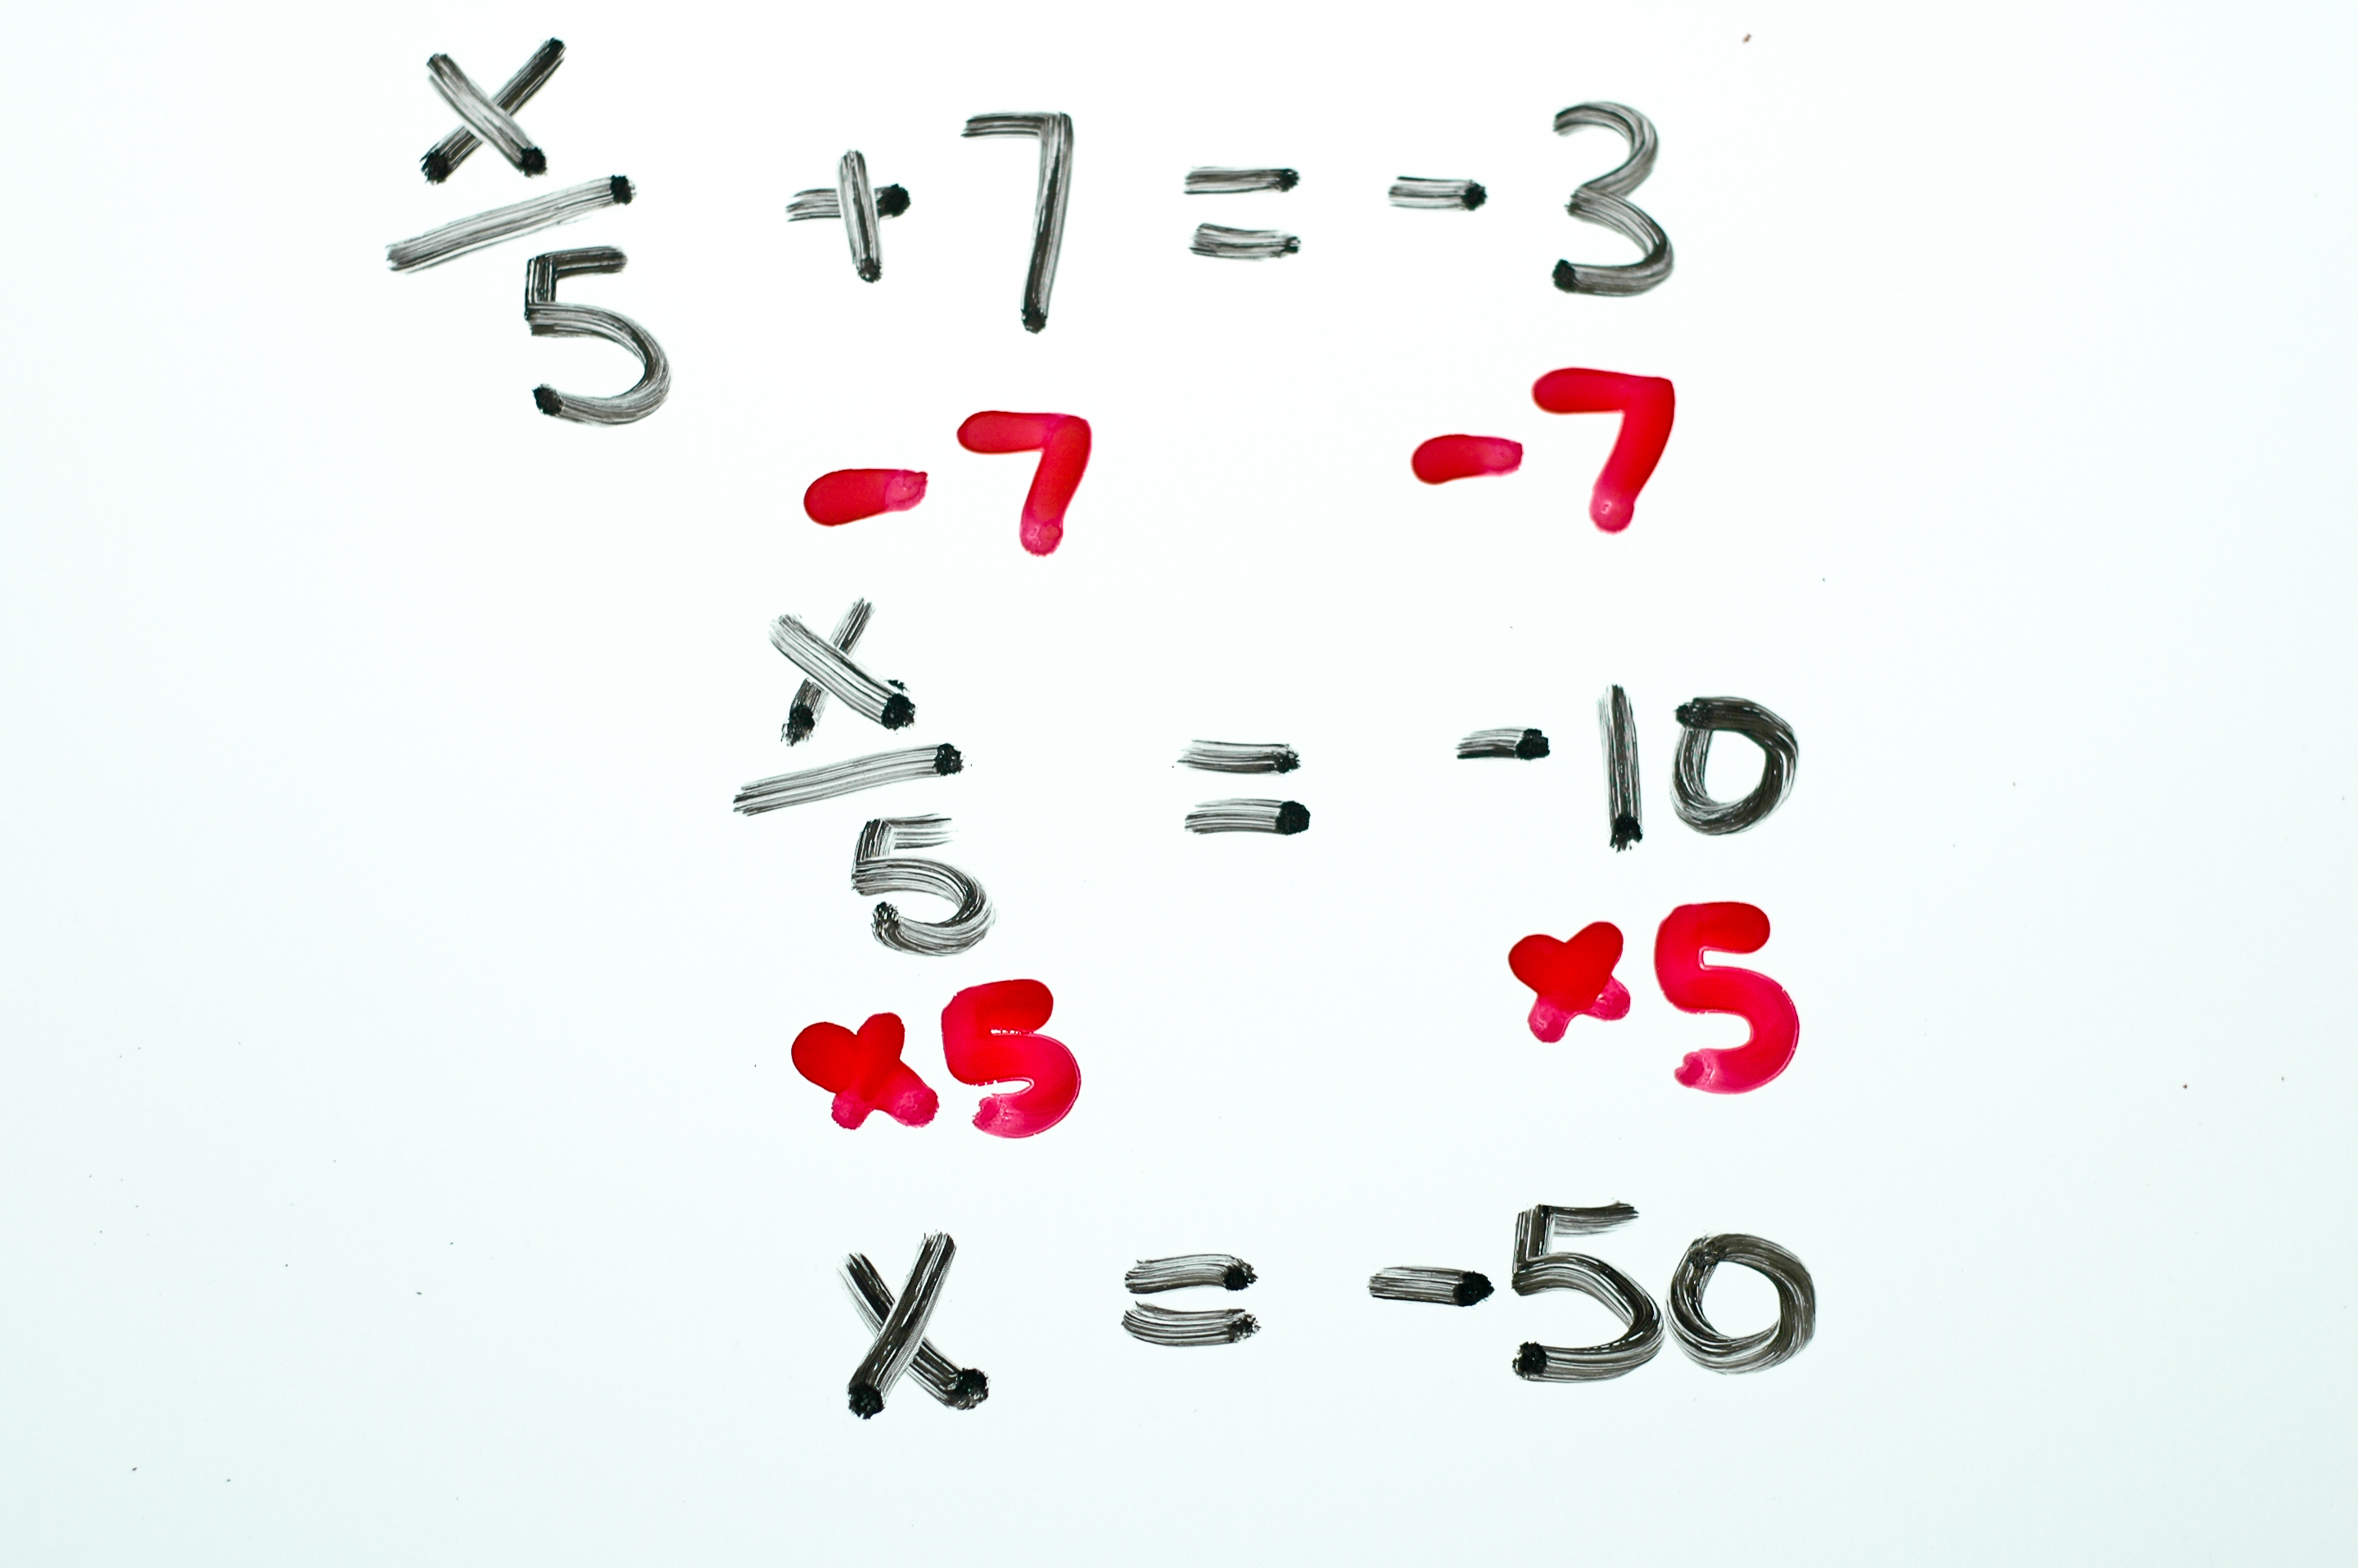 x/5 + 7 = - 3
- 7 - 7
x/5 = - 10
× 5 × 5
x = - 50